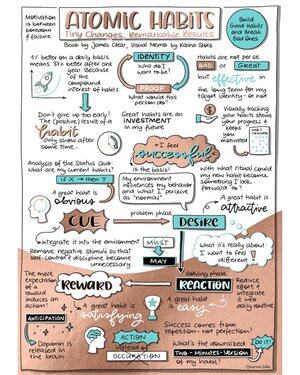 Motivation
is between
boredom &
failure.
ATOMIC HABITS
Tiny Changes, Remarkable Results
Book by James Clear, Visual Memo by
Build
Good Habits
and Break
Bad Ones
1% better on a daily basis
means 37x better after one
year. Because
of the
compound
interest of
habits.
IDENTITY
Who do I
want to be?
PROOF
What would this
person do?
Habits are not per se
Bad Great
but effective in
the long term for my
target identity or not
Don't give up too early!
The (positive) result of a
habit
Only shows after
some time...
Great habits are an
INVESTMENT
in my future
Visually tracking
your habits shows
your progress &
keeps it
easy
HABIT
TRACKER
I feel
successful
is the basis!
Analysis of the Status Quo:
what are my current habits?
If X → then Y
A great habit is
obvious
My environment
influences my behavior
and what I perceive
as "normal"
With what ritual could
my new habit become
something I look
forward to?
A great habit is
attractive
CUE
problem phase
DESIRE
Integrate it into the environment
Remove negative stimuli so that
self-control & discipline becomes
unnecessary
MUST
MAY
What it's really about!
I want to feel
different
The more
expectation
of a
reward
induces an
action!
REWARD
Solving phase
REACTION
Reduce
effort &
integrate it
into daily
routine
A great habit is
satisfying
A great habit is
easy
ANTICIPATION
Dopamin is
released in the
brain
ACTION
instead of
OCCUPATION
Success comes from
repetition - not perfection!
What's the downsized
Two-Minutes-Version
of my habit?
DO IT!